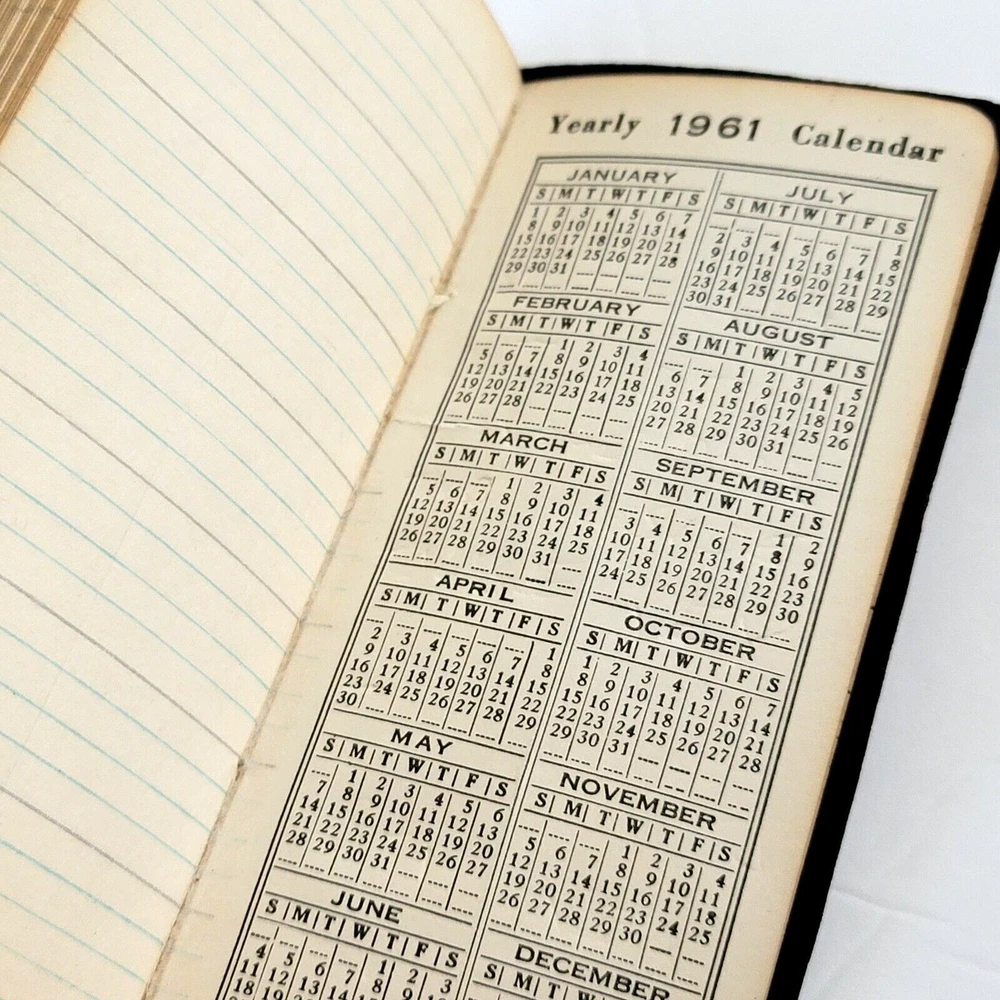 Yearly 1961 Calendar
JANUARY
S M T W T F S
1 2 3 4 5 6 7
8 9 10 11 12 13 14
15 16 17 18 19 20 21
22 23 24 25 26 27 28
29 30 31
FEBRUARY
S M T W T F S
1 2 3 4
5 6 7 8 9 10 11
12 13 14 15 16 17 18
19 20 21 22 23 24 25
26 27 28
MARCH
S M T W T F S
1 2 3 4
5 6 7 8 9 10 11
12 13 14 15 16 17 18
19 20 21 22 23 24 25
26 27 28 29 30 31
APRIL
S M T W T F S
1
2 3 4 5 6 7 8
9 10 11 12 13 14 15
16 17 18 19 20 21 22
23 24 25 26 27 28 29
30
MAY
S M T W T F S
1 2 3 4 5 6
7 8 9 10 11 12 13
14 15 16 17 18 19 20
21 22 23 24 25 26 27
28 29 30 31
JUNE
S M T W T F S
1 2 3
4 5 6 7 8 9
11 12 13 14
18 19 20
JULY
S M T W T F S
1
2 3 4 5 6 7 8
9 10 11 12 13 14 15
16 17 18 19 20 21 22
23 24 25 26 27 28 29
30 31
AUGUST
S M T W T F S
1 2 3 4 5
6 7 8 9 10 11 12
13 14 15 16 17 18 19
20 21 22 23 24 25 26
27 28 29 30 31
SEPTEMBER
S M T W T F S
1 2
3 4 5 6 7 8 9
10 11 12 13 14 15 16
17 18 19 20 21 22 23
24 25 26 27 28 29 30
OCTOBER
S M T W T F S
1 2 3 4 5 6 7
8 9 10 11 12 13 14
15 16 17 18 19 20 21
22 23 24 25 26 27 28
29 30 31
NOVEMBER
S M T W T F S
1 2 3 4
5 6 7 8 9 10 11
12 13 14 15 16 17 18
19 20 21 22 23 24 25
26 27 28 29 30
DECEMBER
S M T W